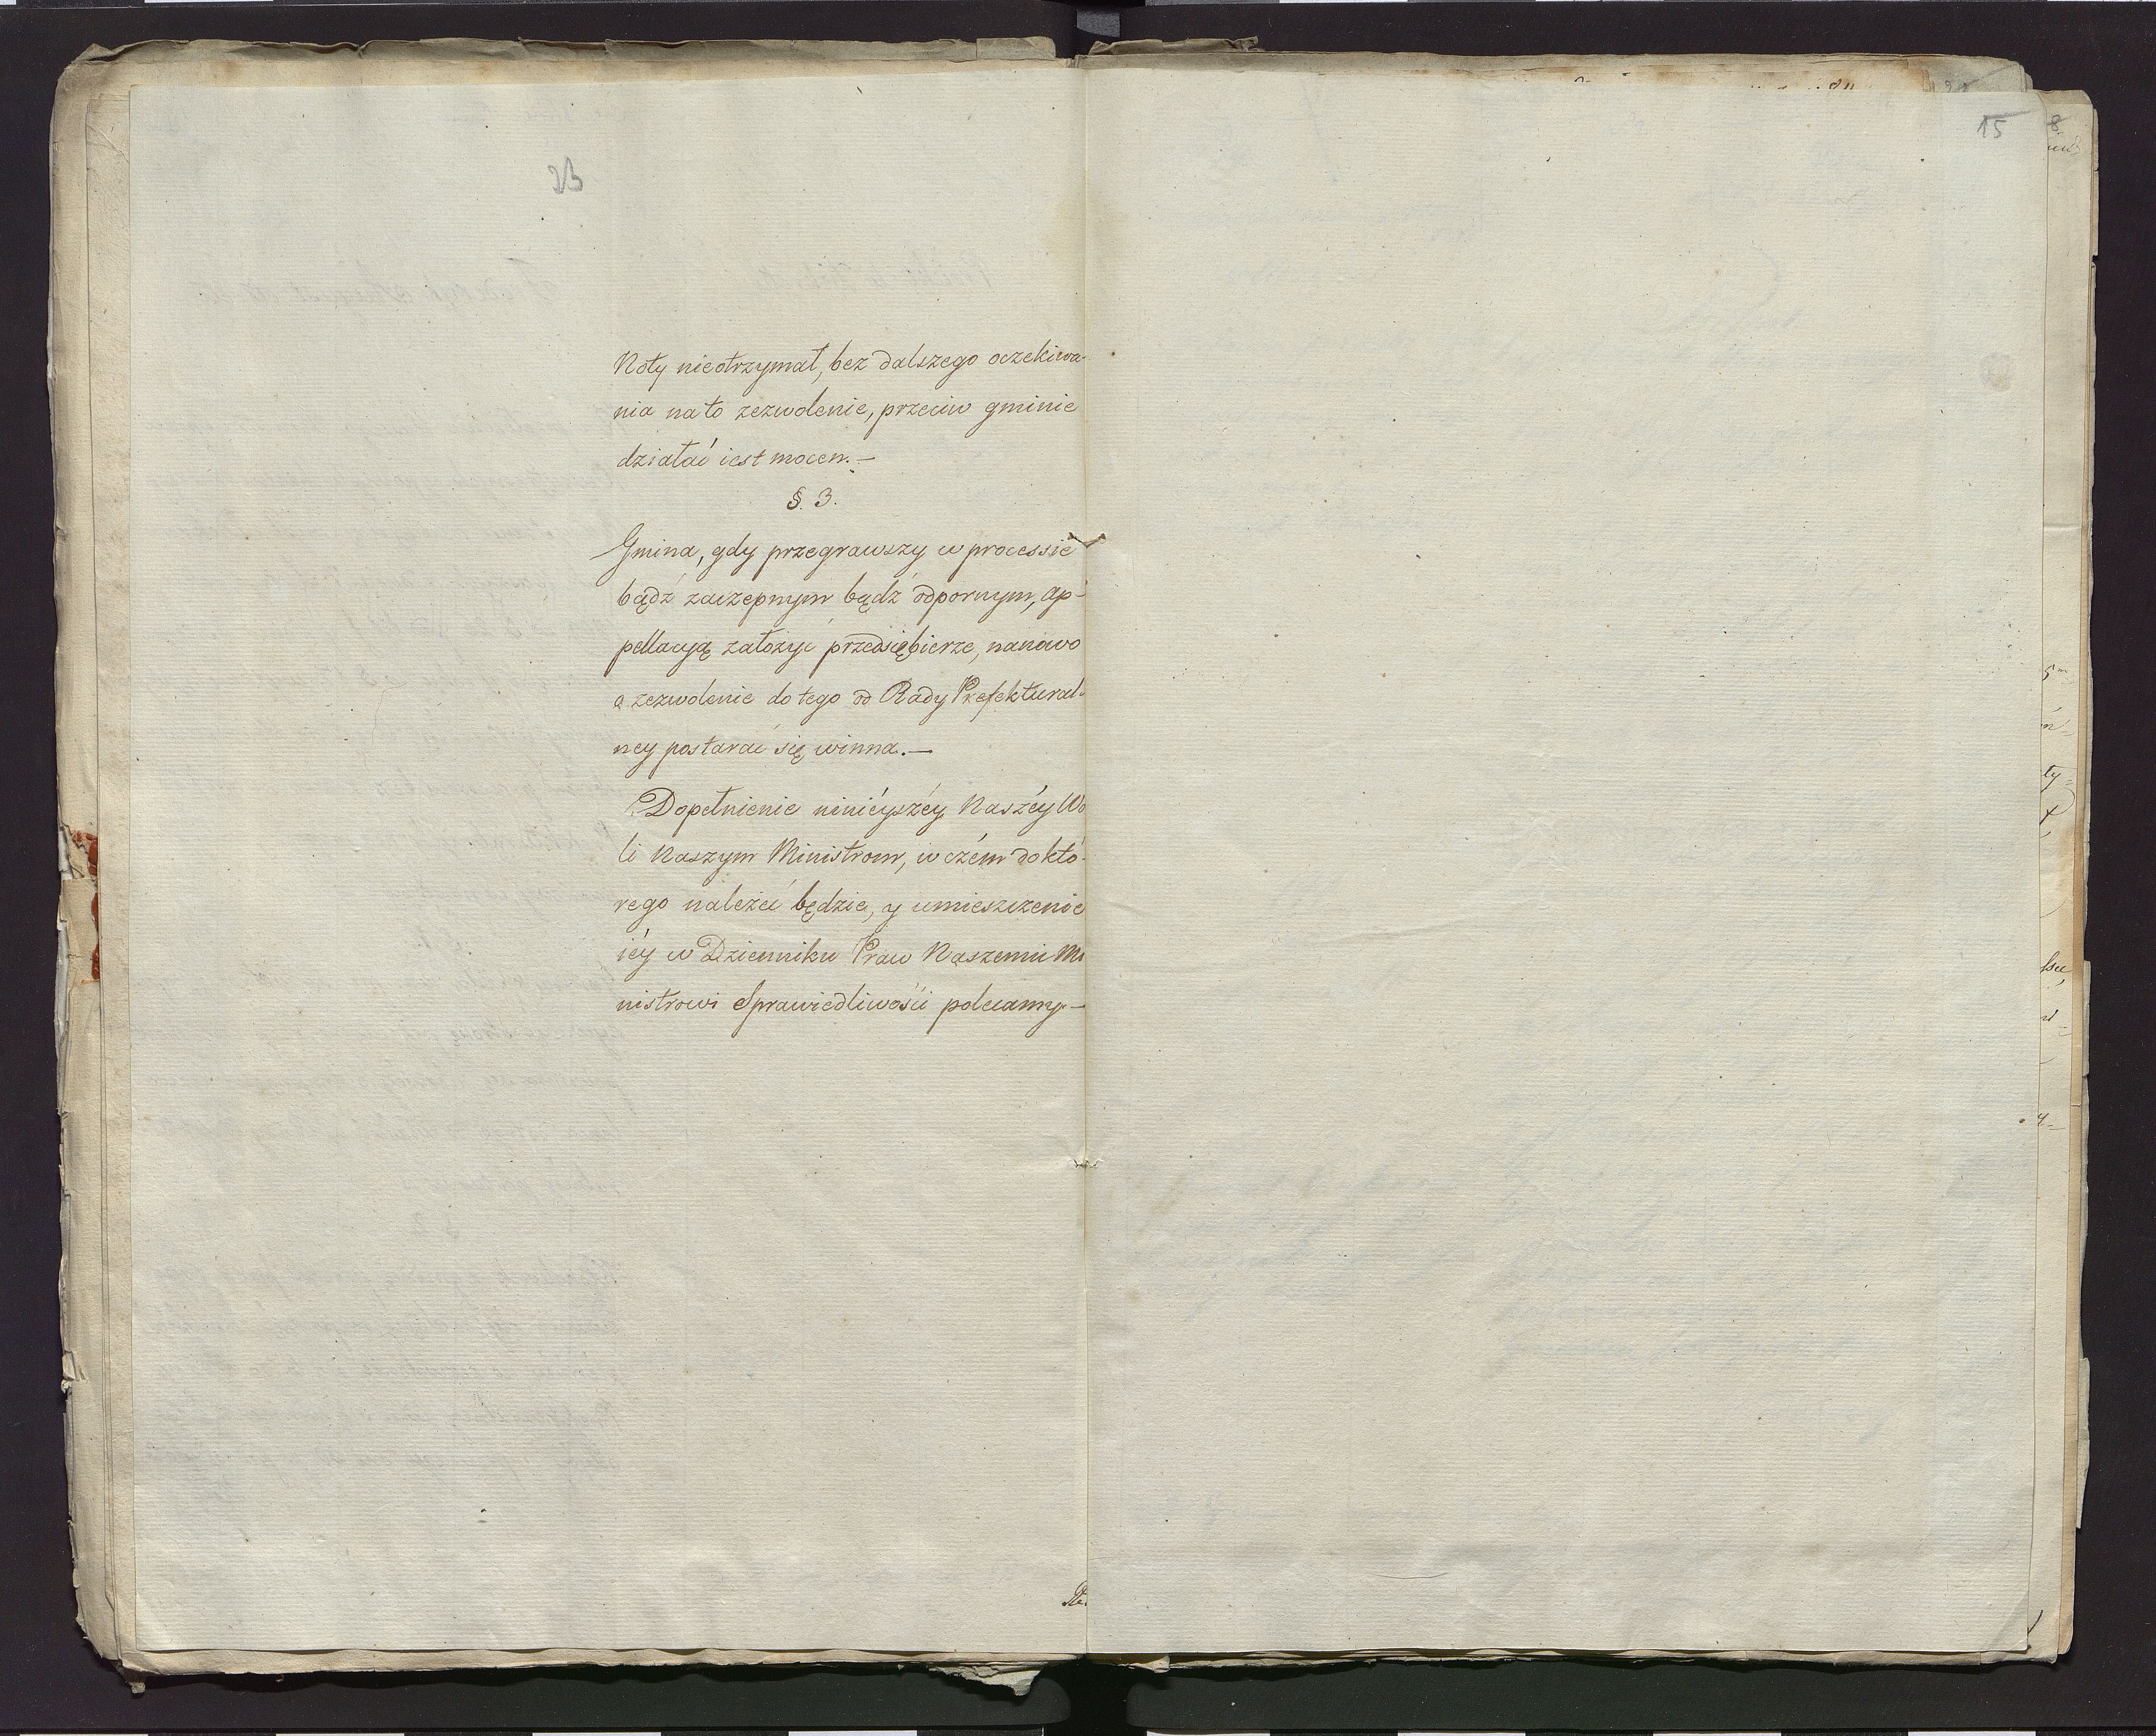 23
15
Noty nieotrzymał, bez dalszego oczekiwa-
nia na to zezwolenie, przeciw gminie
działać iest mocen.—
§. 3.
Gmina, gdy przegrawszy w processie
bądź zaczepnym bądź odpornym, ap-
pellacyą założyć przedsiębierze, nanowo
o zezwolenie do tego od Rady Prefektural-
ney postarać się winna.—
Dopełnienie ninieyszéy Naszéy Wo
li Naszym Ministrom, w czém do któ-
rego należeć będzie, y umieszczenie
iéy w Dzienniku Praw Naszemu Mi
nistrowi Sprawiedliwości polecamy.—